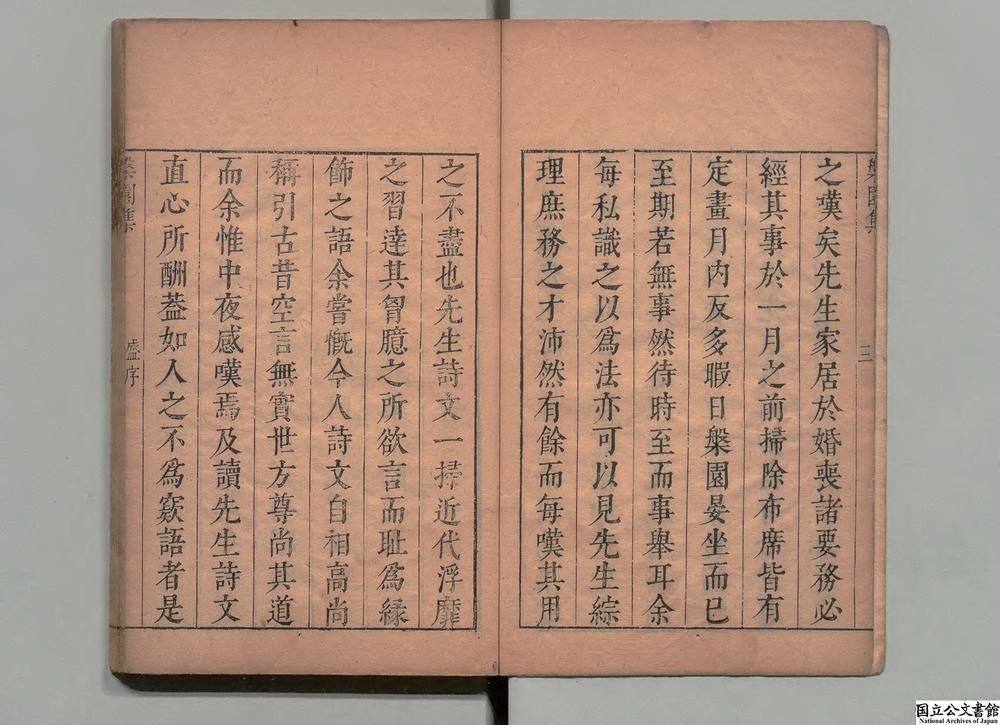 槃園集
三
之嘆矣先生家居於婚喪諸要務必
經其事於一月之前掃除布席皆有
定畫月內反多暇日槃園晏坐而已
至期若無事然待時至而事舉耳余
每私識之以為法亦可以見先生綜
理庶務之才沛然有餘而每嘆其用
之不盡也先生詩文一掃近代浮靡
之習達其胷臆之所欲言而耻為緣
飾之語余嘗慨今人詩文自相高尚
稱引古昔空言無實世方尊尚其道
而余惟中夜感嘆焉及讀先生詩文
直心所酬葢如人之不為窾語者是
槃園集
盛序
国立公文書館
National Archives of Japan